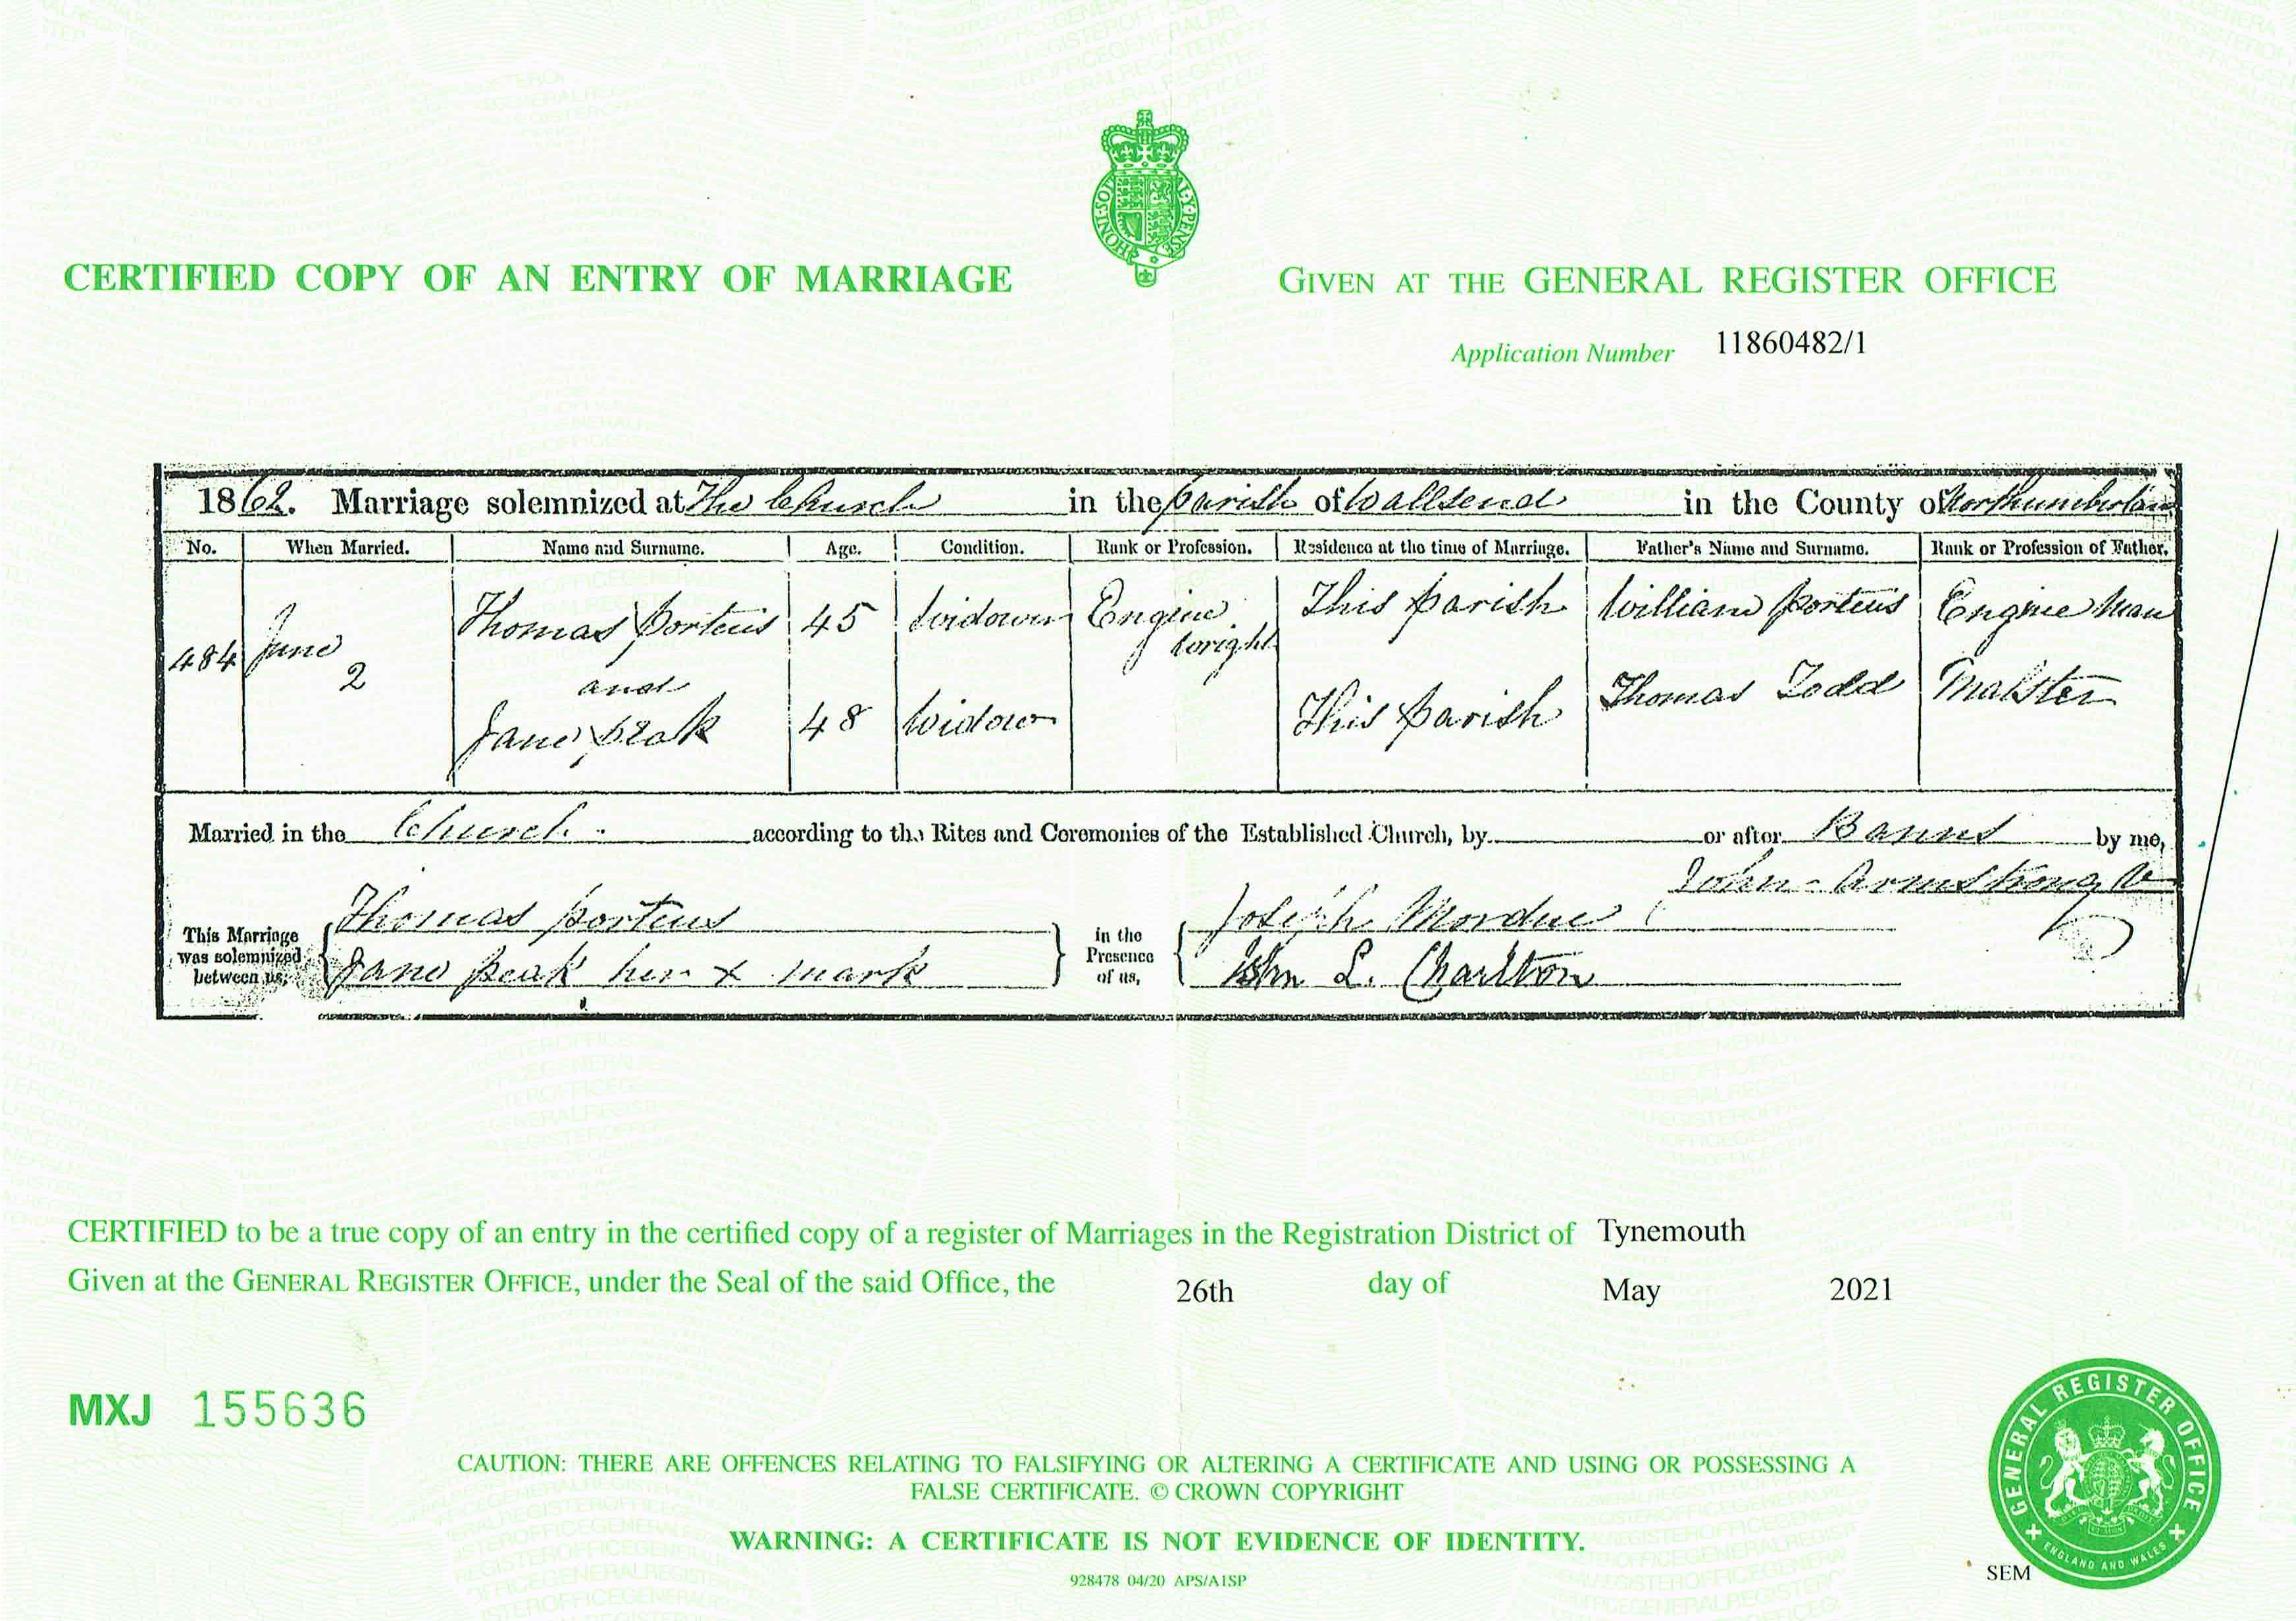 HONI·SOI AL·Y·PENSE
CERTIFIED COPY OF AN ENTRY OF MARRIAGE
GIVEN AT THE GENERAL REGISTER OFFICE
Application Number 11860482/1
1862. Marriage solemnized at The Church in the Parish of Wallsend in the County of Northumberland
No. When Married. Name and Surname. Age. Condition. Rank or Profession. Residence at the time of Marriage. Father's Name and Surname. Rank or Profession of Father.
484 June 2 Thomas Porteus 45 Widower Engine Wright This Parish William Porteus Engine Man
and
Jane Peak 48 Widow This Parish Thomas Todd Malster
Married in the Church according to the Rites and Ceremonies of the Established Church, by or after Banns by me,
John Armstrong
This Marriage was solemnized between us, Thomas Porteus in the Presence of us, Joseph Mordue
Jane Peak her x mark John L. Charlton
CERTIFIED to be a true copy of an entry in the certified copy of a register of Marriages in the Registration District of Tynemouth
Given at the GENERAL REGISTER OFFICE, under the Seal of the said Office, the 26th day of May 2021
MXJ 155636
CAUTION: THERE ARE OFFENCES RELATING TO FALSIFYING OR ALTERING A CERTIFICATE AND USING OR POSSESSING A
FALSE CERTIFICATE. © CROWN COPYRIGHT
WARNING: A CERTIFICATE IS NOT EVIDENCE OF IDENTITY.
928478 04/20 APS/A1SP
SEM
GENERAL REGISTER OFFICE
ENGLAND AND WALES